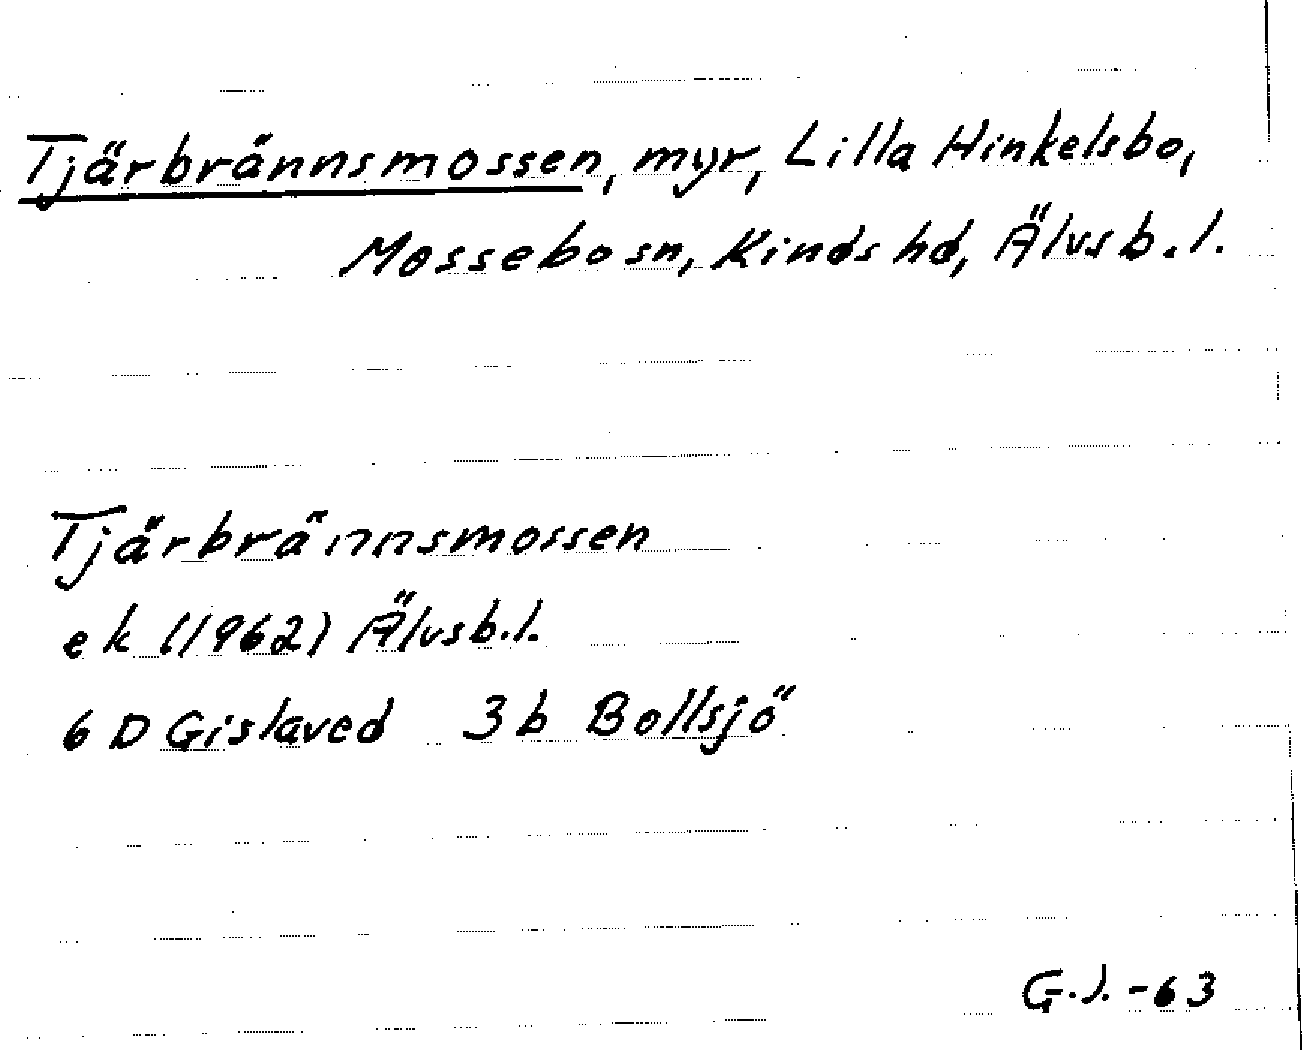 Tjärbrännsmossen, myr, Lilla Hinkelsbo,
Mossebo sn, Kinds hd, Älvsb. l.
Tjärbrännsmossen
ek (1962) Älvsb. l.
6 D Gislaved 3 b Bollsjö
G.J. -63